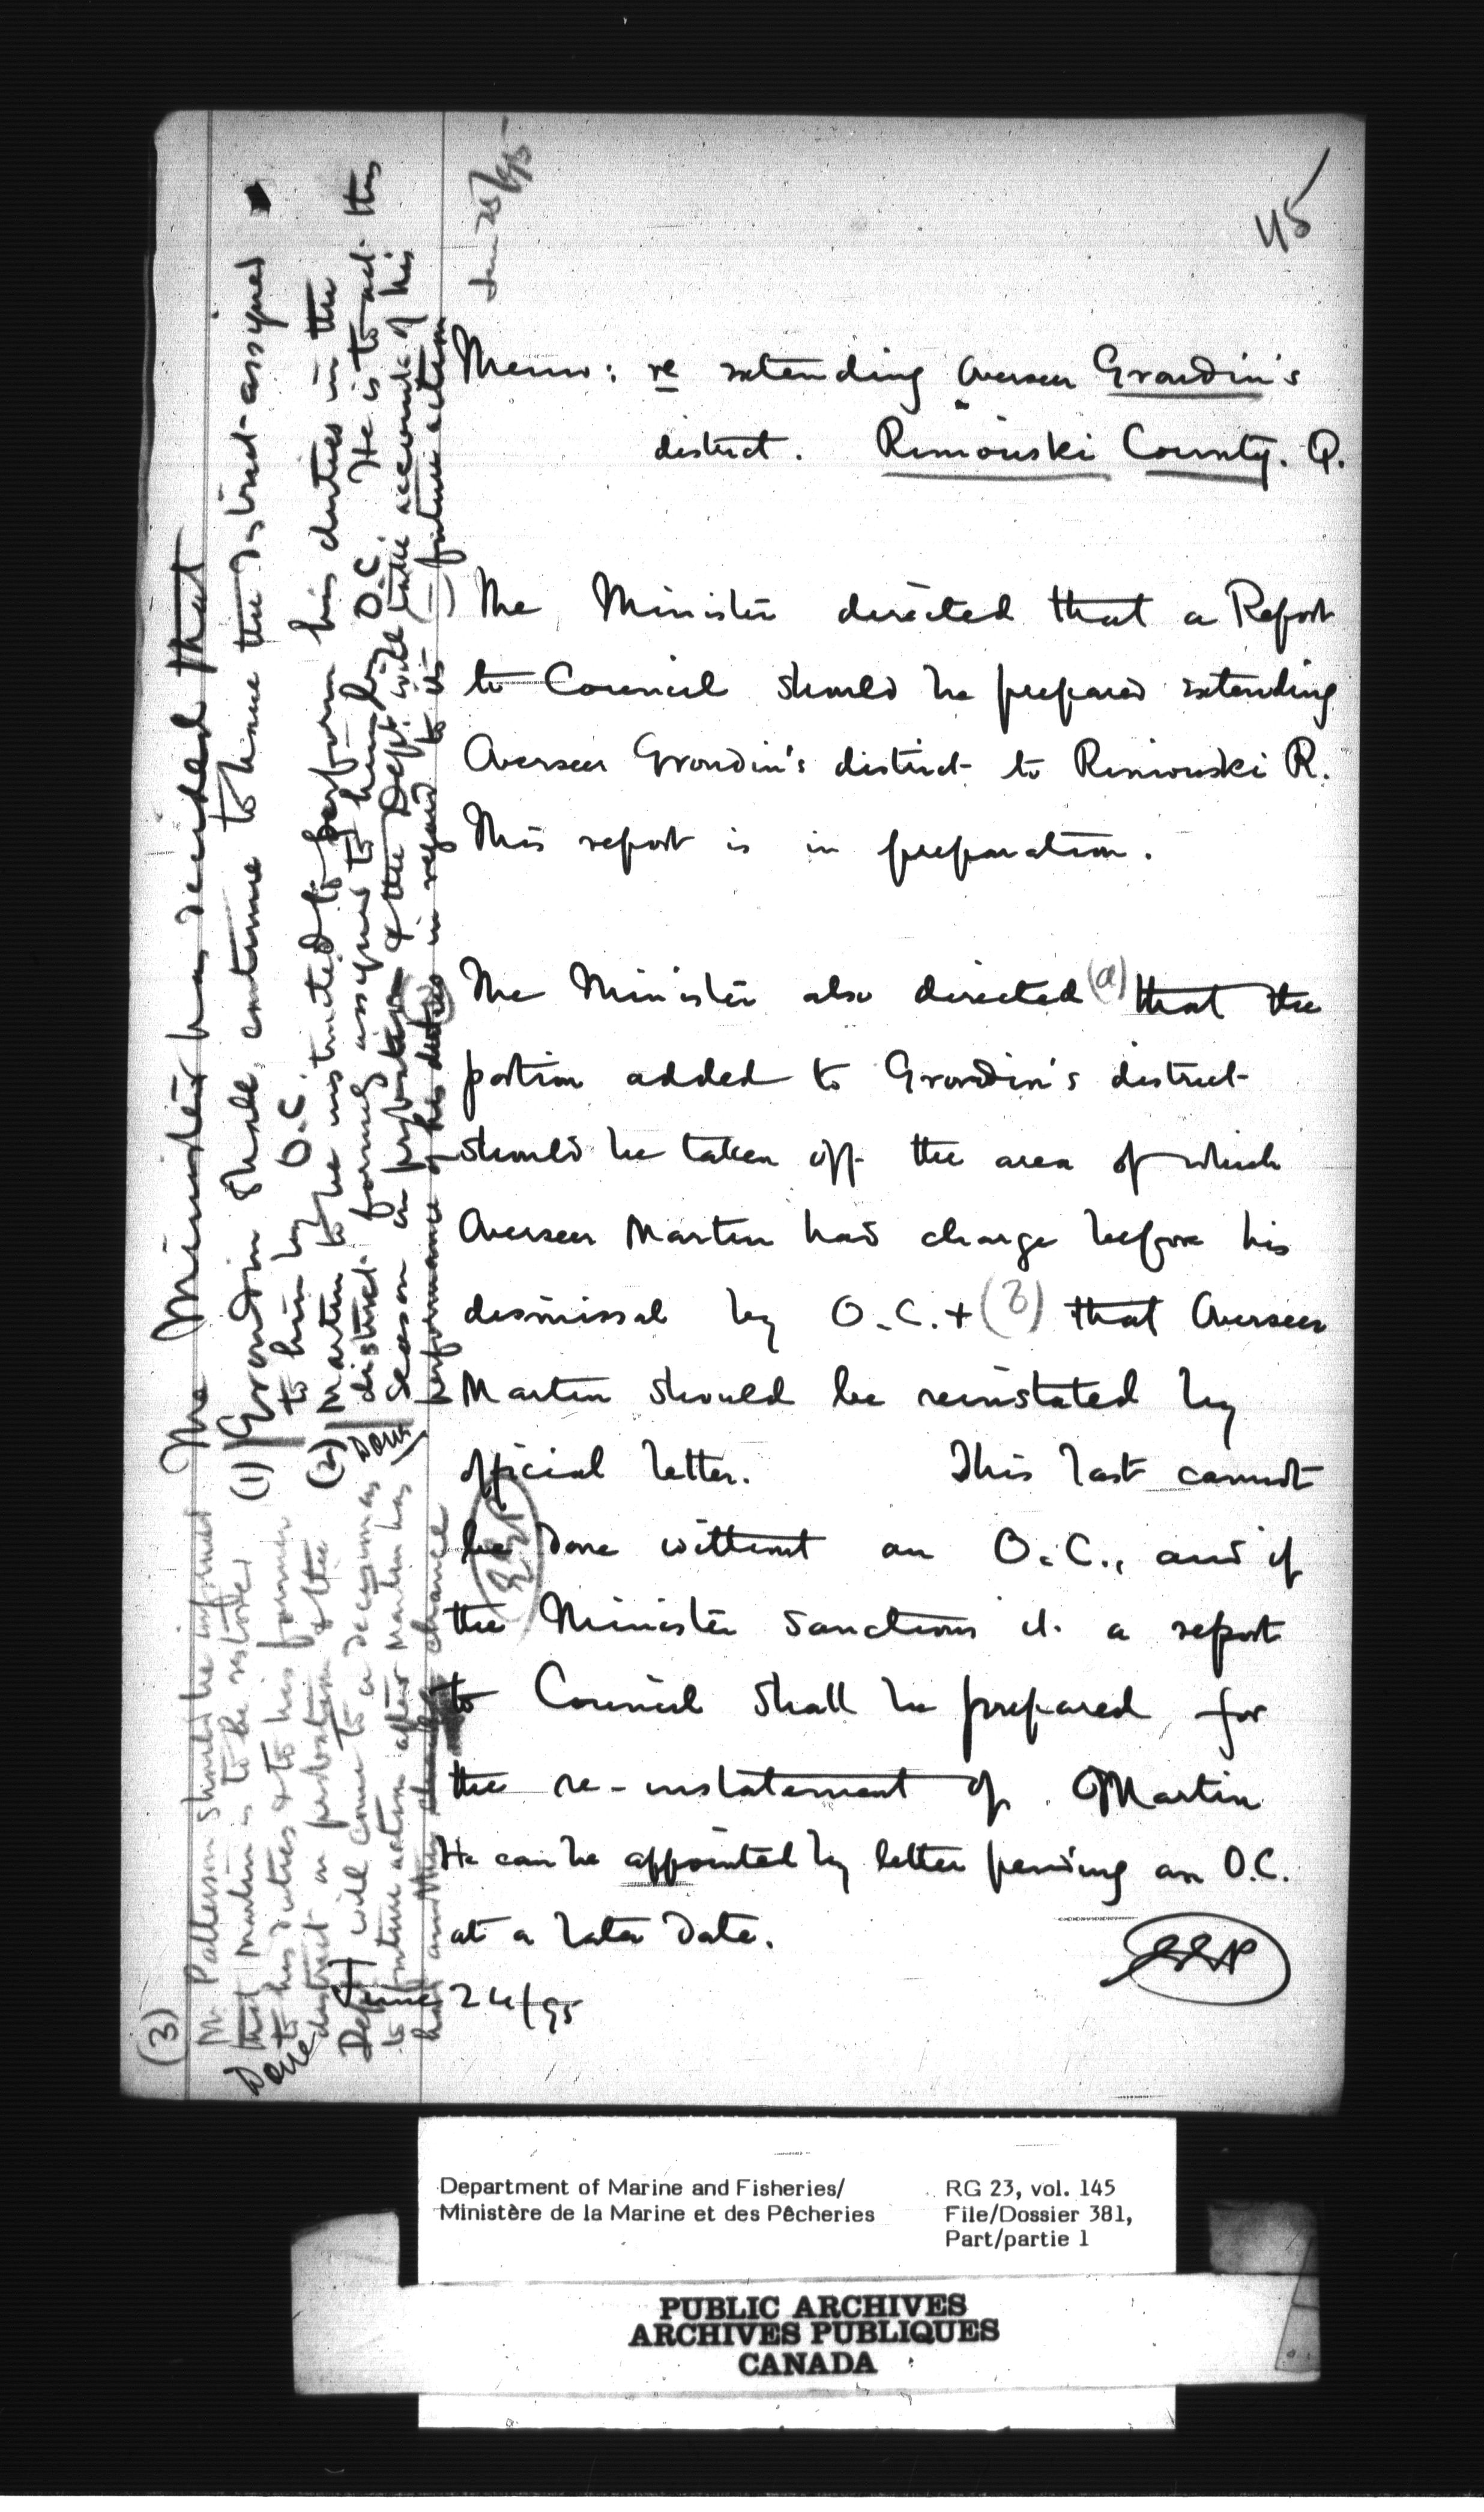 45
Memo: re extending Overseer Grondin's
district. Rimouski County. Q.
The Minister directed that a Report
to Council should be prepared extending
Overseer Grondin's district to Rimouski R.
This report is in preparation.
The Minister also directed (a) that the
portion added to Grondin's district
should be taken off the area of which
Overseer Martin had charge before his
dismissal by O.C. + (3) that Overseer
Martin should be reinstated by
official letter. This last cannot
be done without an O.C., and if
the Minister sanctions it a report
to Council shall be prepared for
the re-instatement of Martin
He can be appointed by letter pending an O.C.
at a later date.
June 24/95
June 25/95
The Minister has decided that
(1) Grondin shall continue to have the district assigned
to him by O.C.
(2) Martin to be instructed to perform his duties in the
district formerly assigned to him by O.C. He is to act this
season on probation & the Dept. will take account of his
performance of his duties in regard to its future action
Done
(3)
Mr Patterson should be informed
that Martin is to be restored
to his duties & to his former
district on probation & the
Dept will come to a decision as
to future action after Martin has
had another chance
Done
Department of Marine and Fisheries/
Ministère de la Marine et des Pêcheries
RG 23, vol. 145
File/Dossier 381,
Part/partie 1
PUBLIC ARCHIVES
ARCHIVES PUBLIQUES
CANADA